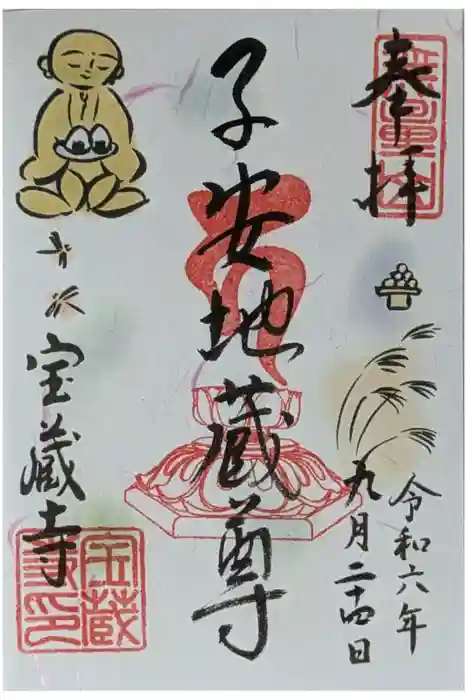 奉拝
令和六年
九月二十四日
子安地蔵尊
宝蔵寺
宝蔵
寺印